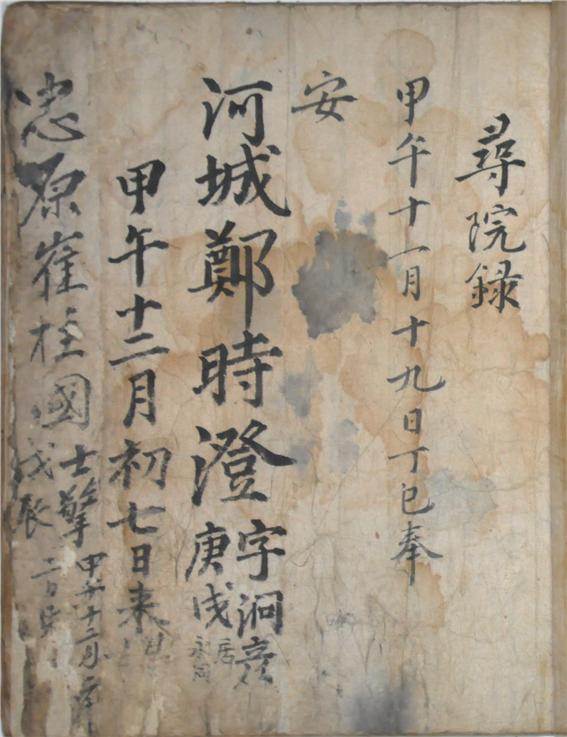 尋院錄
甲午十一月十九日丁巳奉
安
河城鄭時澄 字泂彦
庚戌 居永同
甲午十二月初七日来
忠原崔柱國 士擎 甲午十二月
戊辰